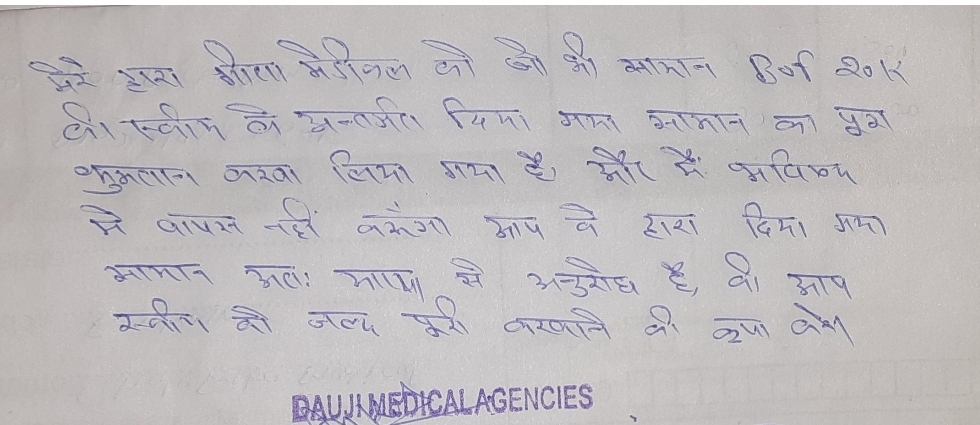 मेरे द्वारा गीता मेडीकल को जो भी सामान Bof 20K
की स्कीम के अन्तर्गत दिया गया सामान का पुरा
भुगतान करवा लिया गया है, और मैं भविष्य
मे वापस नहीं करूँगा आप के द्वारा दिया गया
सामान अतः आप से अनुरोध है, की आप
स्कीम को जल्द पुरी करवाने की कृपा करे।
DAUJI MEDICAL AGENCIES